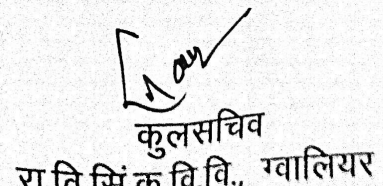 कुलसचिव
रा.वि.सिं.कृ.वि.वि., ग्वालियर